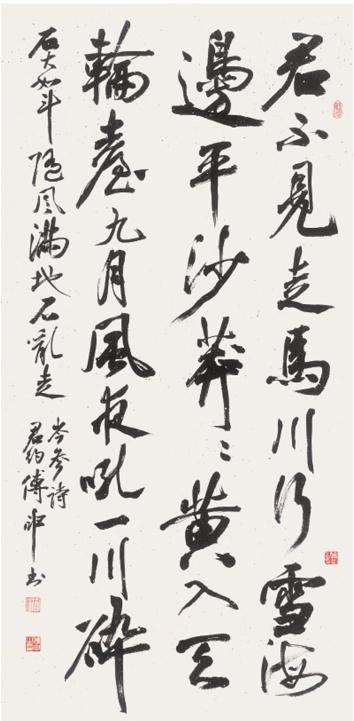 君不見走馬川行雪海
邊平沙莽〻黄入天
輪臺九月風夜吼一川碎
石大如斗隨風滿地石亂走
岑參詩
君約傅申书